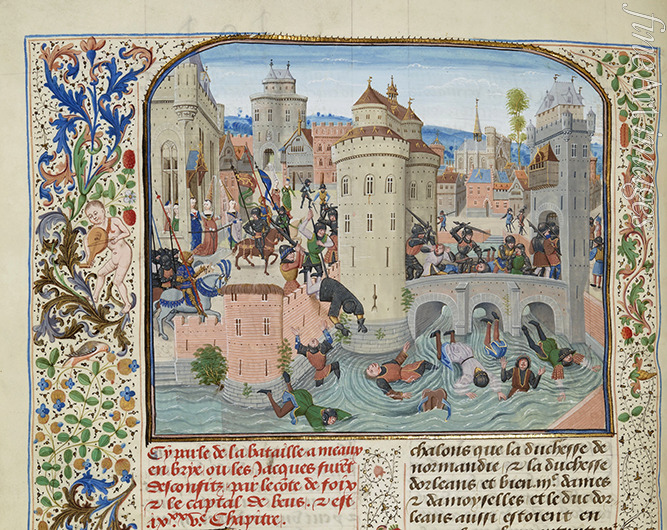 Cy parle de la bataille a meaux
en brye ou les Jacques furēt
desconfitz par le cōte de foix
& le captal de beus. & est
ix.xx vc. Chapitre.
chalons que la duchesse de
normandie & la duchesse
dorleans et bien .iijc. dames
& damoyselles et le duc dor
leans aussi estoient en